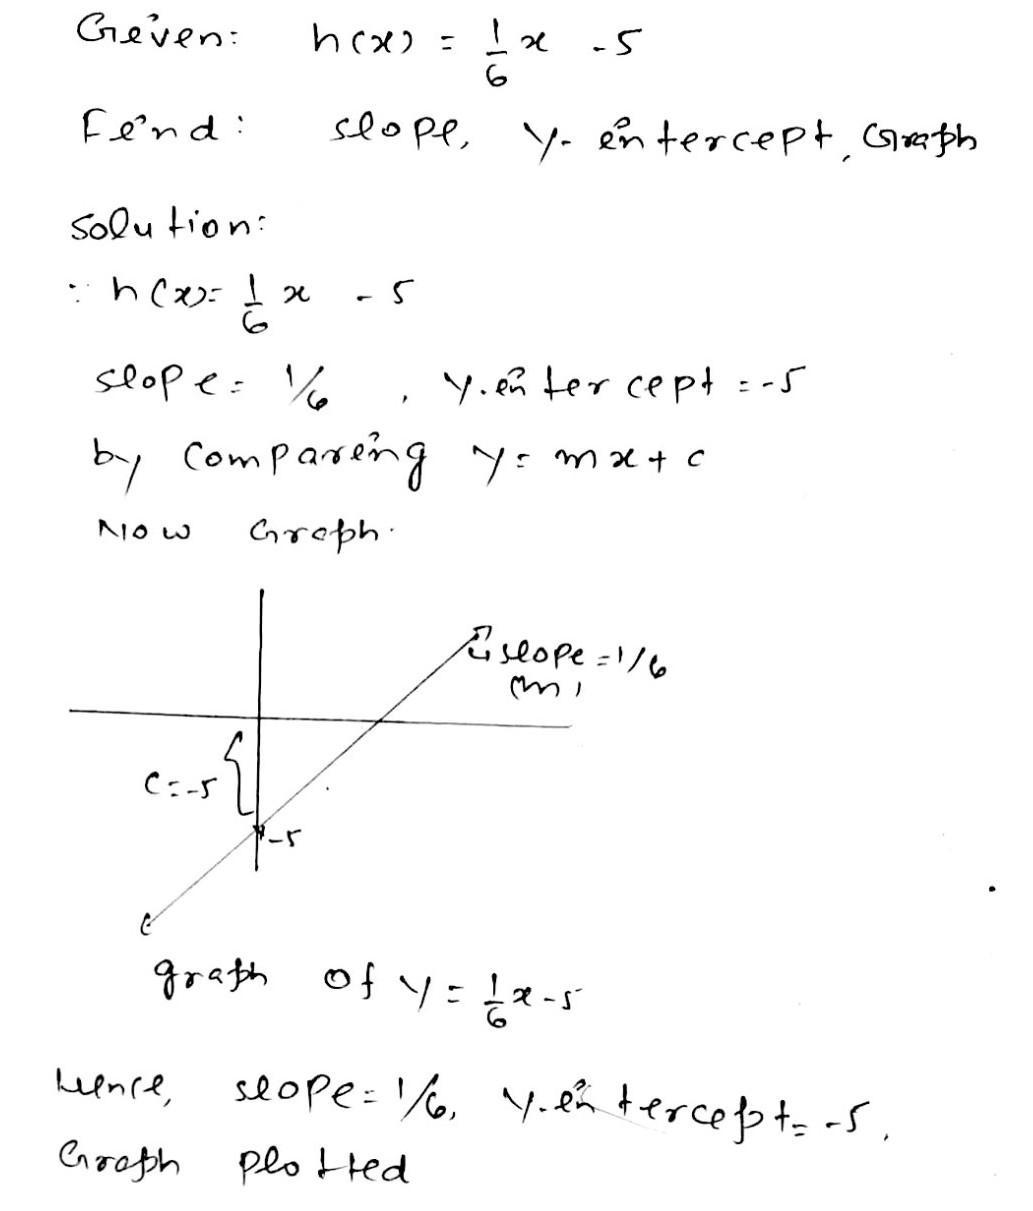 Given: h(x) = 1/6 x - 5
Find: slope, y-intercept, Graph
Solution:
∵ h(x) = 1/6 x - 5
slope = 1/6, y.intercept = -5
by comparing y = mx + c
Now Graph.
slope = 1/6
(m)
C = -5
-5
graph of y = 1/6 x - 5
Hence, slope = 1/6, y.intercept = -5,
Graph plotted